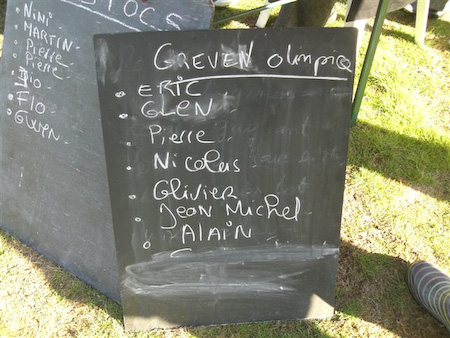 TOCS
Nini
MARTIN
Pierre
Pierre
Flo
GWEN
GREVEN olimpic
ERIC
GLEN
Pierre
Nicolas
Olivier
Jean Michel
ALAIN